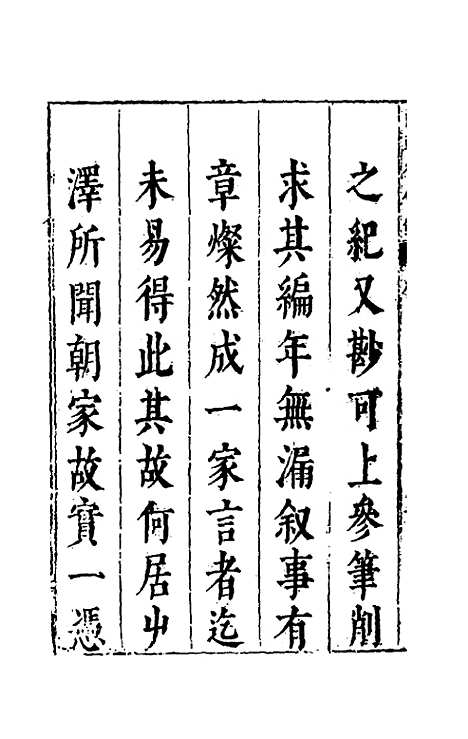 之紀又尠可上參筆削
求其編年無漏叙事有
章燦然成一家言者迄
未易得此其故何居山
澤所聞朝家故實一憑